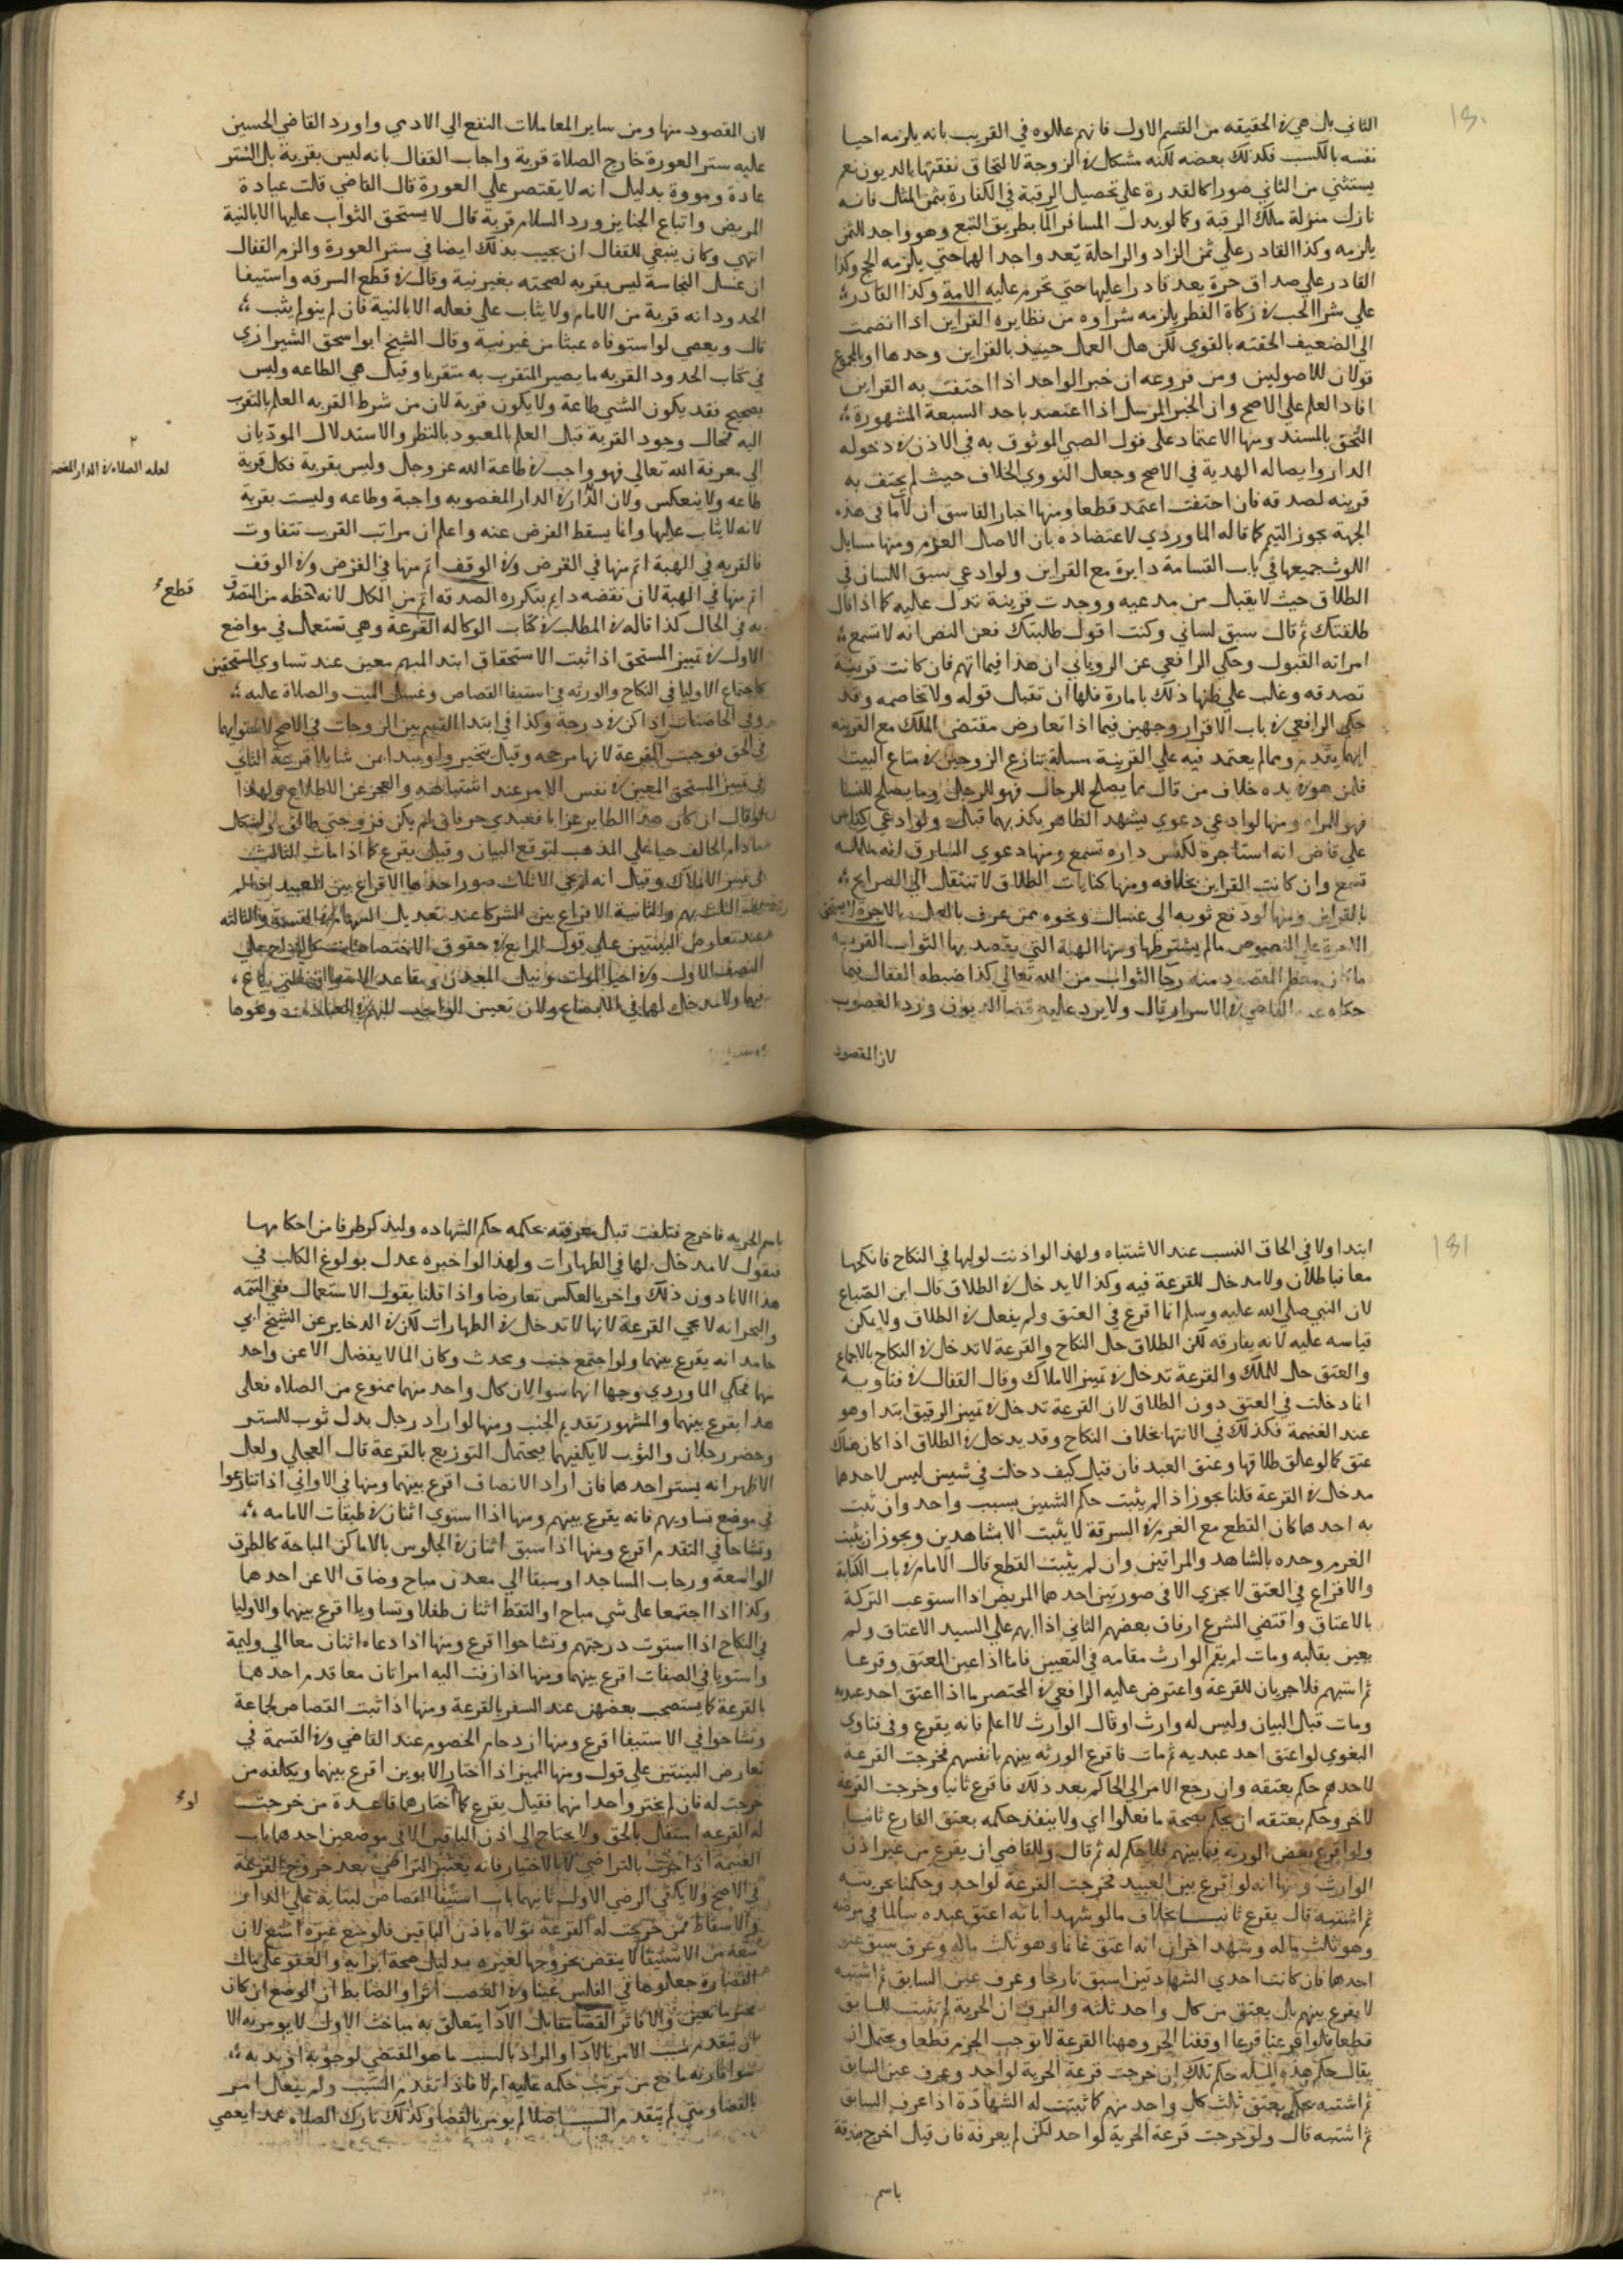 ١٨٠
الثاني بل هي في الحقيقه من القسم الاول فانهم عللوه في القريب بانه يلزمه احيا
نفسه بالكسب فكذلك بعضه لكنه مشكل في الزوجة لالتحاق نفقتها بالديون نعم
يستثني من الثاني صورا كالقدرة علي تحصيل الرقبة في الكفارة بثمن المثل فانه
نازل منزلة ملك الرقبة وكما لو بدل المسافر الما بطريق التبع وهو واجد للثمن
يلزمه وكذا القادر علي ثمن الزاد والراحلة يعد واجدا لهما حتي يلزمه الحج وكذا
القادر علي صداق حرة يعد قادرا عليها حتي تحرم عليه الامة وكذا القادر
علي شرا الحب في زكاة الفطر يلزمه شراوه من نظايره القراين اذا انضمت
الي الضعيف الحقته بالقوي لكن هل العمل حينيذ بالقراين وحدها او بالمجموع
قولان للاصوليين ومن فروعه ان خبر الواحد اذا احتفت به القراين
افاد العلم علي الاصح وان الخبر المرسل اذا اعتضد باحد السبعة المشهورة
التحق بالمسند ومنها الاعتماد علي قول الصبي الموثوق به في الاذن في دخوله
الدار وايصاله الهدية في الاصح وجعل النووي الخلاف حيث لم يحتف به
قرينه لصدقه فان احتفت اعتمد قطعا ومنها اخبار الفاسق ان لا ما في هذه
الجهة يجوز التيمم كما قاله الماوردي لاعتضاده بان الاصل العدم ومنها مسايل
اللوث جميعها في باب القسامة دايرة مع القراين ولو ادعي سبق اللسان في
الطلاق حيث لا يقبل من مدعيه ووجدت قرينة تدل عليه كما اذا قال
طلقتك ثم قال سبق لساني وكنت اقول طلبتك فعن النص انه لا تسمع
امراته القبول وحكي الرافعي عن الروياني ان هذا فيما اتهم فان كانت قرينة
تصدقه وغلب علي ظنها ذلك بامارة فلها ان تقبل قوله ولا تخاصمه وقد
حكي الرافعي في باب الاقرار وجهين فيما اذا تعارض مقتضي الملك مع القرينه
ايهما يقدم ومما لم يعتمد فيه علي القرينة مسالة تنازع الزوجين في متاع البيت
فلمن هو في يده خلاف من قال ما يصلح للرجال فهو للرجل وما يصلح للنسا
فهو للمراه ومنها لو ادعي دعوي يشهد الظاهر بكذبهما قبل ولو ادعي كناس
علي قاض انه استاجره لكنس داره تسمع ومنها دعوي السارق انه ملكه
تسمع وان كانت القراين بخلافه ومنها كنايات الطلاق لا تنتقل الي الصرايح
بالقراين ومنها لو دفع ثوبه الي غسال ونحوه ممن عرف بالعمل بالاجرة لا يستحق
الاجرة علي النصوص ما لم يشترطها ومنها الهبة التي يقصد بها الثواب القربه
ما كان معظم المقصود منه رجا الثواب من الله تعالي كذا ضبطه القفال فيما
حكاه عنه القاضي في الاسرار قال ولا يرد عليه قضا الديون ورد الغصوب
لان المقصود
لان المقصود منها ومن ساير المعاملات النفع الي الادمي واورد القاضي الحسين
عليه ستر العورة خارج الصلاة قربة واجاب القفال بانه ليس بقربة بل الستر
عادة ومروة بدليل انه لا يقتصر علي العورة قال القاضي قلت عيادة
المريض واتباع الجنايز ورد السلام قربة قال لا يستحق الثواب عليها الا بالنية
انتهي وكان ينبغي للقفال ان يجيب بذلك ايضا في ستر العورة والزم القفال
ان غسل النجاسة ليس بقربه لصحته بغير نية وقال في قطع السرقه واستيفا
الحدود انه قربة من الامام ولا يثاب علي فعاله الا بالنية فان لم ينو لم يثب
قال ويعصي لو استوفاه عبثا من غير نية وقال الشيخ ابو اسحق الشيرازي
في كتاب الحدود القربه ما يصير المتقرب به متقربا وقيل هي الطاعه وليس
بصحيح فقد يكون الشي طاعة ولا يكون قربة لان من شرط القربه العلم بالتقرب
اليه فمحال وجود القربة قبل العلم بالمعبود بالنظر والاستدلال المودّيان
الي معرفة الله تعالي فهو واجب في طاعة الله عز وجل وليس بقربة فكل قربة
طاعه ولا ينعكس ولان الدار في الدار المغصوبه واجبة وطاعه وليست بقربة
لعله الصلاة في الدار المغصوبة
لانه لا يثاب عليها وانما يسقط الفرض عنه واعلم ان مراتب القرب تتفاوت
فالقربه في الهبة اتم منها في القرض وفي الوقف اتم منها في القرض وفي الوقف
اتم منها في الهبة لان نقضه دايم يتكرره الصدقه اتم من الكل لانه حظه من المتصدق
قطع
به في الحال كذا قاله في المطلب في كتاب الوكاله القرعة وهي تستعمل في مواضع
الاول في تمييز المستحق اذا ثبت الاستحقاق ابتد المبهم معين عند تساوي المستحقين
كاجتماع الاوليا في النكاح والورثه في استيفا القصاص وغسل الميت والصلاة عليه
وفي الحاضنات اذا كن في درجة وكذا في ابتدا القسم بين الزوجات في الاصح لاستوايهما
في الحق فوجبت القرعة لانها مرجحه وقيل يتخير ويبدا بمن شا بلا قرعة الثاني
في تمييز المستحق المعين في نفس الامر عند اشتباهه والعجز عن الاطلاع
قال ان كان هذا الطاير غرابا فعبدي حر فان لم يكن فزوجتي طالق
مادام الحالف حيا علي المذهب لتوقع البيان وقيل يقرع كما اذا مات الثالث
في تمييز الاملاك وقيل انه لم يجي الا ثلاث صور احدها الاقراع بين العبيد اذا لم
الثلث بهم والثانية الاقراع بين الشركا عند تعديل السهام في القسمة والثالثه
عند تعارض البينتين علي قول الرابع في حقوق الاختصاصات
فيها ولا مدخل لها في الابضاع ولا في تعيين الواجب المبهم في العبادات ونحوها
١٨١
ابتدا ولا في الحاق النسب عند الاشتباه ولهذا لو اذنت لوليها في النكاح فانكحها
معا فباطلان ولا مدخل للقرعة فيه وكذا لا يدخل في الطلاق قال ابن الصباغ
لان النبي صلي الله عليه وسلم انما اقرع في العتق ولم يفعل في الطلاق ولا يمكن
قياسه عليه لانه يفارقه لكن الطلاق حل النكاح والقرعة لا تدخل في النكاح بالاجماع
والعتق حل للملك والقرعة تدخل في تمييز الاملاك وقال القفال في فتاويه
انما دخلت في العتق دون الطلاق لان القرعة تدخل في تمييز الرقيق ابتدا وهو
عند الغنيمة فكذلك في الانتها بخلاف النكاح وقد يدخل في الطلاق اذا كان هناك
عتق كما لو علق طلاقها وعتق العبد فان قيل كيف دخلت في شيين ليس لاحدهما
مدخل في القرعة قلنا يجوز اذ لم يثبت حكم الشيين بسبب واحد وان ثبت
به احدهما كان القطع مع الغرم في السرقة لا يثبت الا بشاهدين ويجوز ان يثبت
الغرم وحده بالشاهد والمراتين وان لم يثبت القطع قال الامام في باب الكتابة
والاقراع في العتق لا يجزي الا في صورتين احدهما المريض اذا استوعب التركة
بالاعتاق واقتضي الشرع ارقاق بعضهم الثاني اذا ابهم علي السيد الاعتاق ولم
يعين بقلبه ومات لم يقم الوارث مقامه في التعيين فاما اذا عين المعتق وقرعا
ثم اشتبهم فلا جريان للقرعة واعترض عليه الرافعي في المختصر ما اذا اعتق احد عبديه
ومات قبل البيان وليس له وارث او قال الوارث لا اعلم فانه يقرع وفي فتاوي
البغوي لو اعتق احد عبديه ثم مات فاقرع الورثه بينهم بانفسهم فخرجت القرعة
لاحدهم حكم بعتقه وان رجع الامر الي الحاكم بعد ذلك فاقرع ثانيا وخرجت القرعة
لاخر وحكم بعتقه ان يحكم بصحة ما فعلوا اي ولا ينفذ حكمه بعتق القارع ثانيا
ولو اقرع بعض الورثه فيما بينهم فلا حكم له ثم قال وللقاضي ان يقرع من غير اذن
الوارث ومنها انه لو اقرع بين العبيد فخرجت القرعة لواحد وحكمنا بحريته
ثم اشتبه قال يقرع ثانيا بخلاف ما لو شهدا بانه اعتق عبده سالما في مرضه
وهو ثلث ماله وشهد اخران انه اعتق غانما وهو ثلث ماله وعرف سبق عتق
احدهما فان كانت احدي الشهادتين اسبق تاريخا وعرف عين السابق ثم اشتبه
لا يقرع بينهم بل يعتق من كل واحد ثلثه والفرق ان الحرية لم تثبت للسابق
قطعا فلو اقرعنا قرعا اوقفنا الحر وههنا القرعة لا توجب الجزم قطعا ويحتمل ان
يقال حكم هذه المسله حكم تلك ان خرجت قرعة الحرية لواحد وعرف عين السابق
ثم اشتبه يحكم بعتق ثلث كل واحد منهم كما ثبتت له الشهادة اذا عرف السابق
ثم اشتبه قال ولو خرجت قرعة الحرية لواحد لكن لم يعرفه فان قيل اخرج مزقة
باسم
باسم الحريه فاخرج فتلفت قبل معرفته بحكمه حكم الشهاده وليذكر طرفا من احكامها
فنقول لا مدخل لها في الطهارات ولهذا لو اخبره عدل بولوغ الكلب في
هذا الانا دون ذلك واخر بالعكس تعارضا واذا قلنا بقول الاستعمال ففي التتمه
والبحر انه لا يجي القرعة لانها لا تدخل في الطهارات لكن في الدخاير عن الشيخ ابي
حامد انه يقرع بينهما ولو اجتمع جنب ومحدث وكان الما لا يفضل الا عن واحد
منها فحكي الماوردي وجها انهما سوا لان كل واحد منهما ممنوع من الصلاه فعلي
هذا يقرع بينهما والمشهور تقديم الجنب ومنها لو اراد رجل بدل ثوب للستر
وحضر رجلان والثوب لا يكفيهما يحتمل التوزيع بالقرعة قال العجلي ولعل
الاظهر انه يستر احدهما فان اراد الانصاف اقرع بينهما ومنها في الاواني اذا تنازعوا
في موضع تساويهم فانه يقرع بينهم ومنها اذا استوي اثنان في طبقات الامامه
وتشاحا في التقدم اقرع ومنها اذا سبق اثنان في الجلوس بالاماكن المباحة كالطرق
الواسعة ورحاب المساجد او سبقا الي معدن مباح وضاق الا عن احدهما
وكذا اذا اجتمعا علي شي مباح او التقط اثنان طفلا وتساويا اقرع بينهما والاوليا
في النكاح اذا استوت درجتهم وتشاحوا اقرع ومنها اذا دعاه اثنان معا الي وليمة
واستويا في الصفات اقرع بينهما ومنها اذا زفت اليه امراتان معا قدم احدهما
بالقرعة كما يستصحب بعضهن عند السفر بالقرعة ومنها اذا ثبت القصاص لجماعة
وتشاحوا في الاستيفا اقرع ومنها ازدحام الخصوم عند القاضي وفي القسمة في
تعارض البينتين علي قول ومنها المميز اذا اختار الابوين اقرع بينهما ويكلفه من
خرجت له فان لم يختر واحدا منهما فقيل يقرع كما اختارهما قاعدة من خرجت
لو
له القرعه استقل بالحق ولا يحتاج الي اذن الباقين الا في موضعين احدهما باب
القسمة اذا جرت بالتراضي لا بالاجبار فانه يعتبر التراضي بعد خروج القرعة
في الاصح ولا يكفي الرضي الاول ثانيهما باب استيفا القصاص
والاسقاط فمن خرجت له القرعة تولاه باذن الباقين فلو منع غيره امتنع لان
حقه من الاستيفا لا ينقض بخروجها لغيره بدليل صحة ابرايه والعفو علي مال
القضا في الصلاة جعلوها
القضا يقابل الادا يتعلق به مباحث الاول لا يومر به الا
ان يتقدم سبب الامر بالادا والمراد بالسبب ما هو المقتضي لوجوبه او ندبه
سوا قارنه مانع من ترتب حكمه عليه ام لا فاذا تقدم السبب ولم يفعل امر
بالقضا ومتي لم يتقدم السبب اصلا لم يومر بالقضا وكذلك تارك الصلاه عمدا يعصي